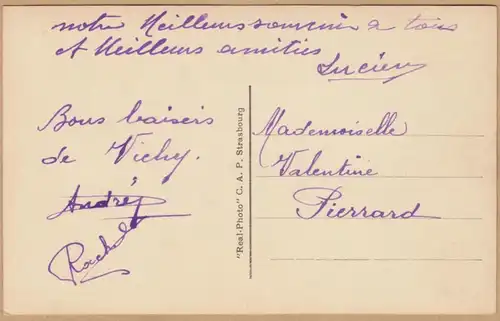 notre Meilleurs souvenir a tous
et Meilleurs amities
Lucien
Bons baisers
de Vichy.
André
Rachel
"Real-Photo" C. A. P. Strasbourg
Mademoiselle
Valentine
Pierrard